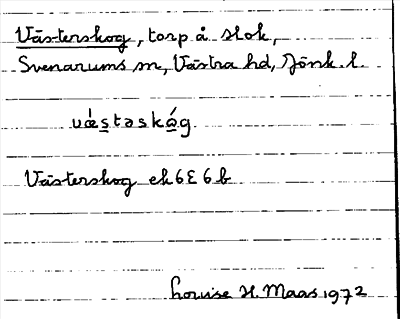 Västerskog, torp å Slok,
Svenarums sn, Västra hd, Jönk. l.
væ̀s̲təskǻ̲g.
Västerskog ek 6E 6b
Louise H. Maas 1972